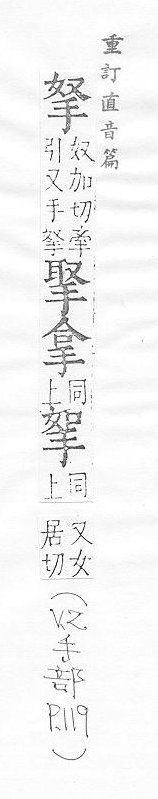 重訂直音篇
拏
奴加切牽
引又手拏
拿
同
上
挐
同
上
又女
居切
(V.2手部P.119)